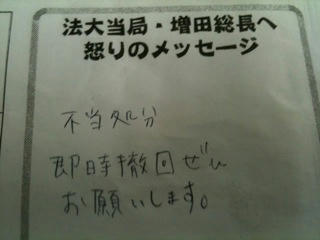 法大当局・増田総長へ
怒りのメッセージ
不当処分
即時撤回ぜひ
お願いします。